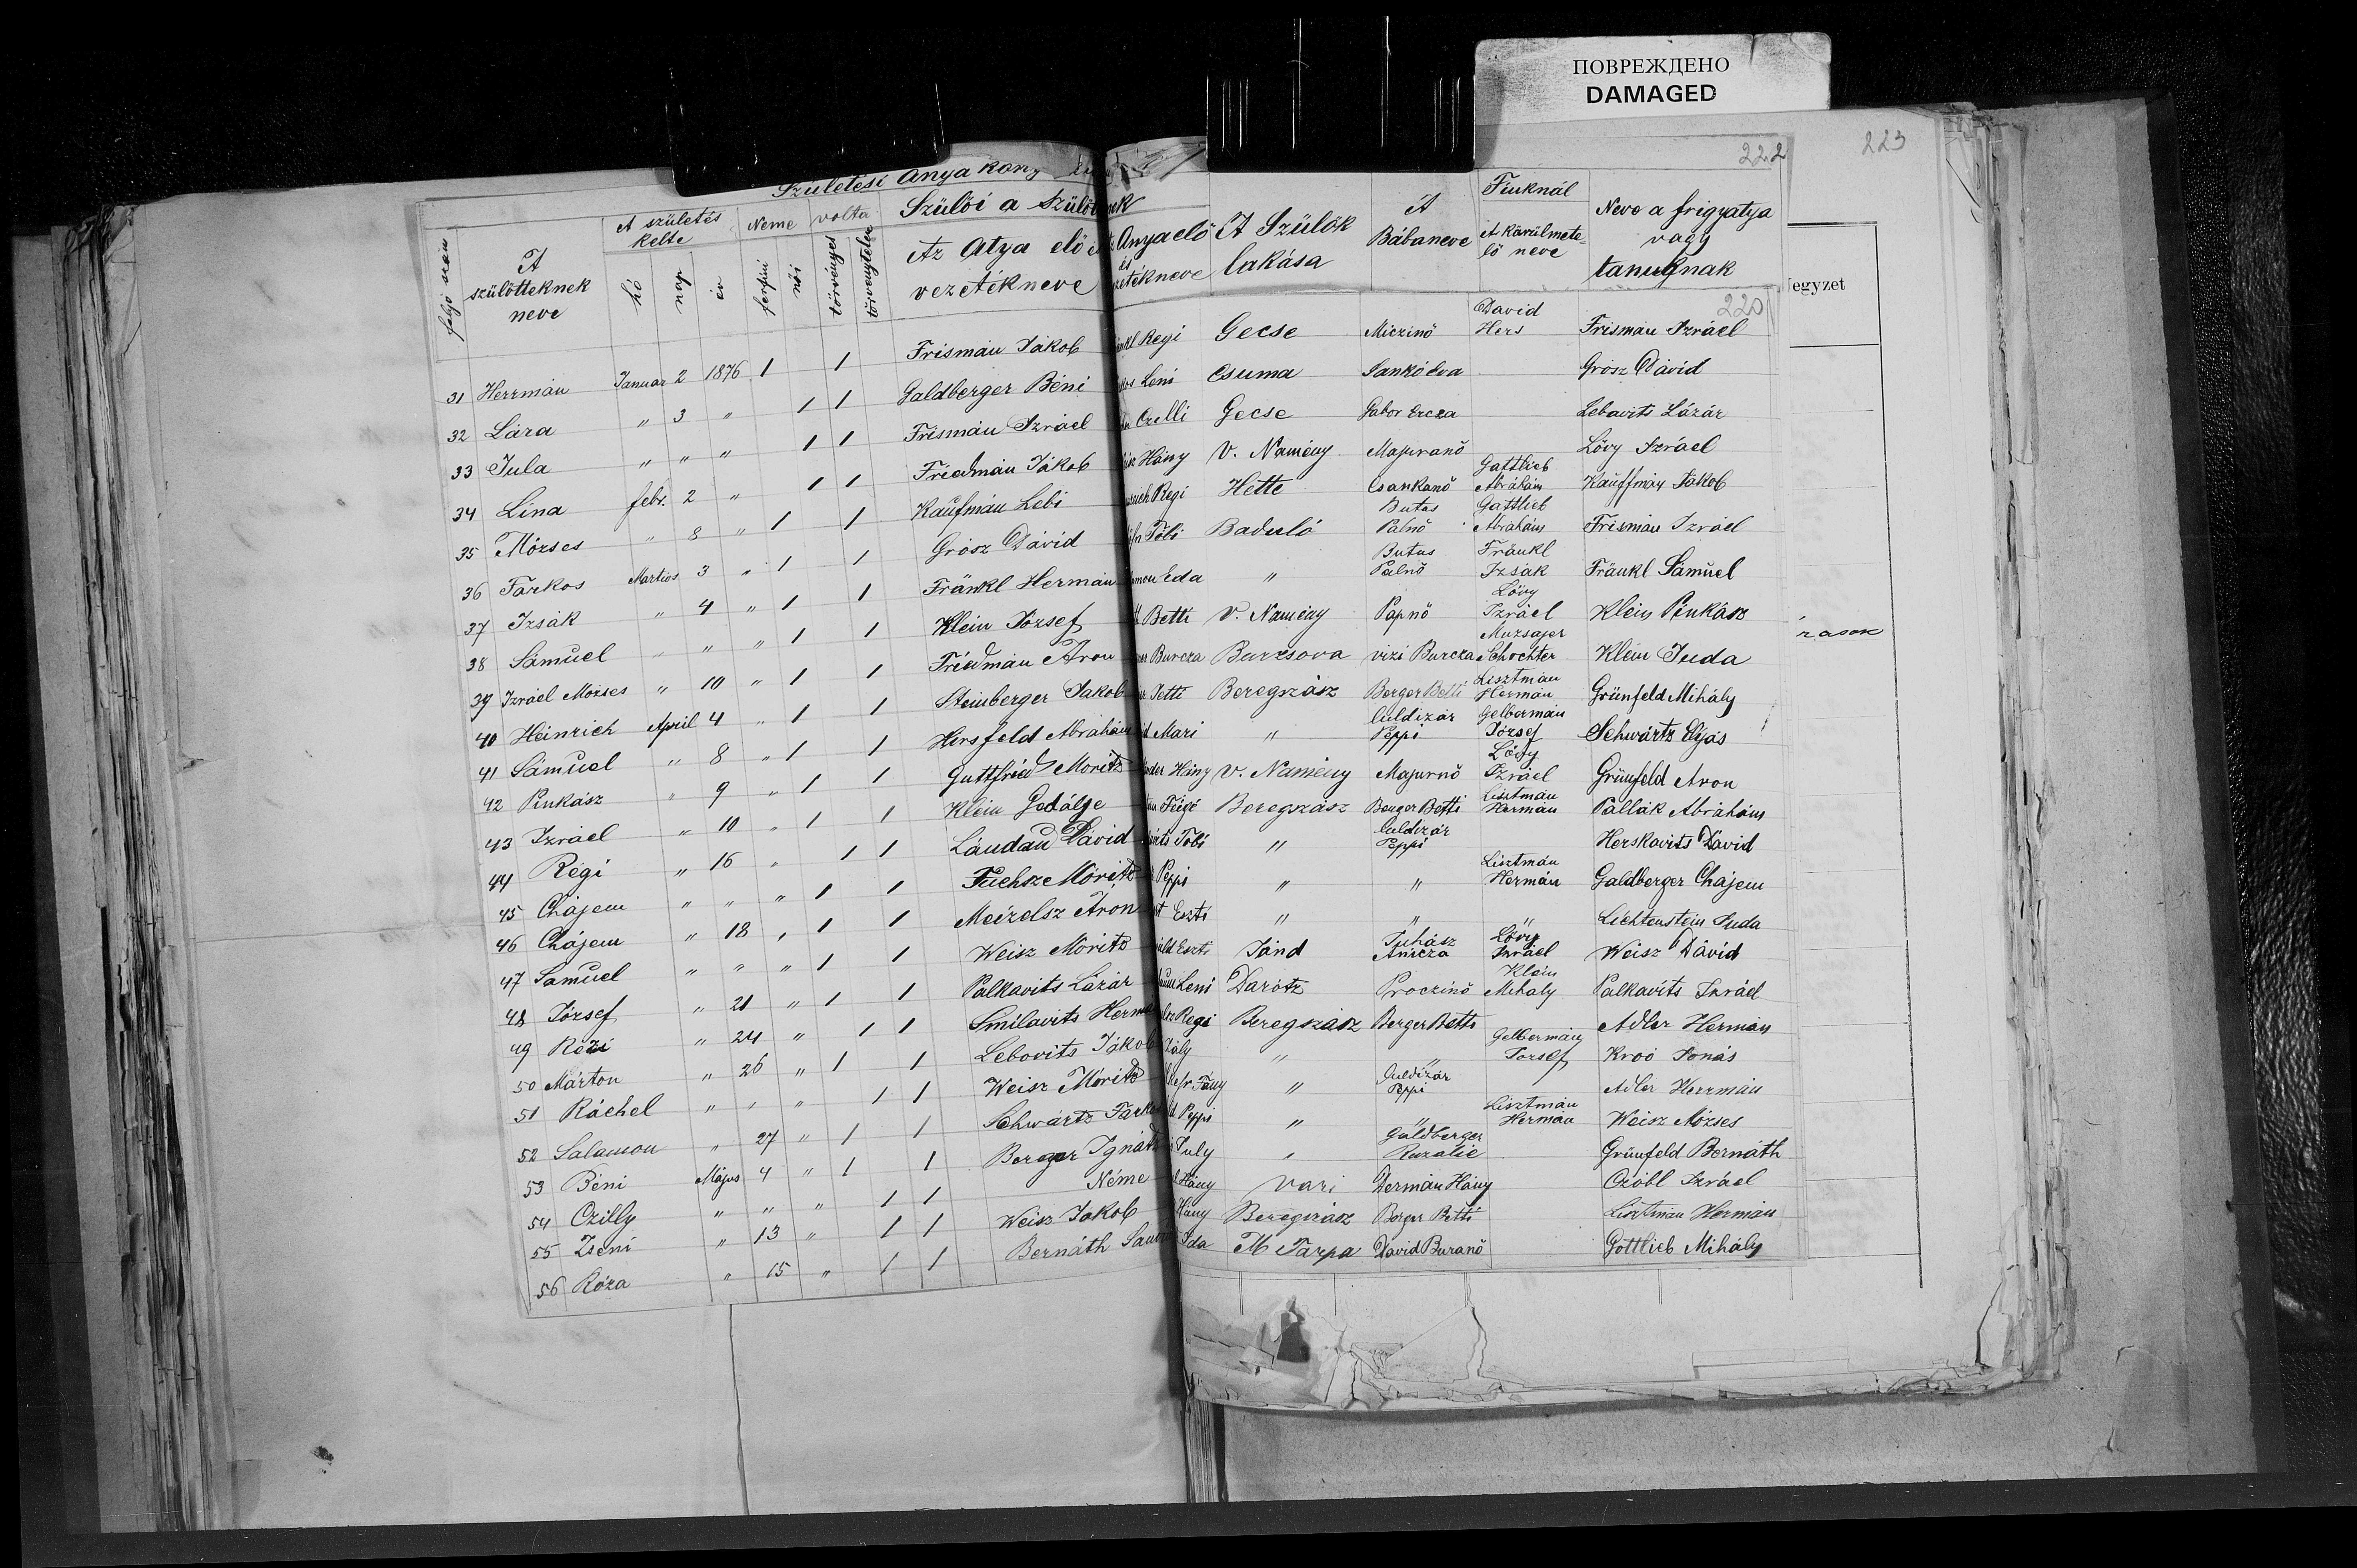 ПОВРЕЖДЕНО
DAMAGED
223
222
220
Születési Anya köny
folyó szám
A szülötteknek neve
A születés kelte
hó
nap
év
Neme
férfini
női
volta
törvényes
törvénytelen
Szülői a Szülöttnek
Az Atya elő és vezetékneve
Anya elő és
A Szülők lakása
A Bába neve
Fiuknál
A körülmetelő neve
Neve a frigyatya vagy tanuknak
egyzet
rason
31 Herrmán Januar 2 1876 1 1 Frismán Jákob Regi Gecse Miczinő David Hers Frisman Izráel
32 Lára " 3 " 1 1 Galdberger Béni Leni Csuma Sankó Éva Grosz Dávid
33 Jula " " " 1 1 Frismán Izráel Czelli Gecse Gabor Ercza Lebavits Lázár
34 Lina febr. 2 " 1 1 Friedmán Jákob Hány V. Namény Majuranő Lövy Izráel
35 Mózses " 8 " 1 1 Kaufmán Lebi Regi Hette Csankanő Gattlieb Abrahám Kauffman Jakob
36 Farkos Martios 3 " 1 1 Grósz Dávid Béli Baduló Butas Palnő Gattlieb Abrahám Frismán Izráel
37 Izsák " 4 " 1 1 Fränkl Hermán Eda " Butus Palnő Fränkl Izsák Fränkl Sámuel
38 Sámuel " " " 1 1 Klein József Betti V. Namény Papnő Lövy Izráel Klein Pinkász
39 Izráel Mózses " 10 " 1 1 Friedmán Áron Burcza Barzsova vizi Burcza Muzsajer Schochter Klein Juda
40 Heinrich April 4 " 1 1 Steinberger Jakob Jetti Beregszász Berger Betti Lisztmán Hermán Grünfeld Mihály
41 Sámuel " 8 " 1 1 Hersfeld Abrahám Mari " Culdizár Peppi Gelbermán József Schwartz Elyás
42 Pinkász " 9 " 1 1 Guttfried Moritz Hány V. Namény Majurnő Lövy Izráel Grünfeld Aron
43 Izráel " 10 " 1 1 Klein Godálje Feigé Beregszász Berger Betti Lisztmán Hermán Pallák Abrahám
44 Régi " 16 " 1 1 Landau Dávid Tobi " Culdizár Peppi Herskavits Dávid
45 Chájem " " " 1 1 Fuchsz Móritz Peppi " " Lisztmán Hermán Galdberger Chájem
46 Chájem " 18 " 1 1 Meizelsz Áron Eszti " " " Lichtenstein Juda
47 Samuel " " " 1 1 Weisz Móritz Eszti Jánd Juhász Anicza Lövy Izráel Weisz Dávid
48 József " 21 " 1 1 Palkavits Lázár Leni Darótz Proczinő Klein Mihaly Palkavits Izráel
49 Rézi " 24 " 1 1 Smilavits Herman Regi Beregszász Berger Betti Adler Hermán
50 Márton " 26 " 1 1 Lebovits Jákob Zály " " Gelbermán Jozsef Kroó Jonás
51 Ráchel " " " 1 1 Weisz Móritz Fány " Culdizár Peppi Adler Herrmán
52 Salamon " 27 " 1 1 Schwartz Farkas Peppi " " Lisztmán Hermán Weisz Mózses
53 Béni Május 4 " 1 1 Berger Ignátz July " Galdberger Ruzalie Grünfeld Bernáth
54 Czilly " " " 1 1 Néme Hány Vari Dermán Hány Czóbl Izráel
55 Zseni " 13 " 1 1 Weisz Jakob Hány Beregszász Berger Betti Lisztmán Hermán
56 Róza " 15 " 1 1 Bernáth Ida M Tarpa David Buranő Gottlieb Mihály